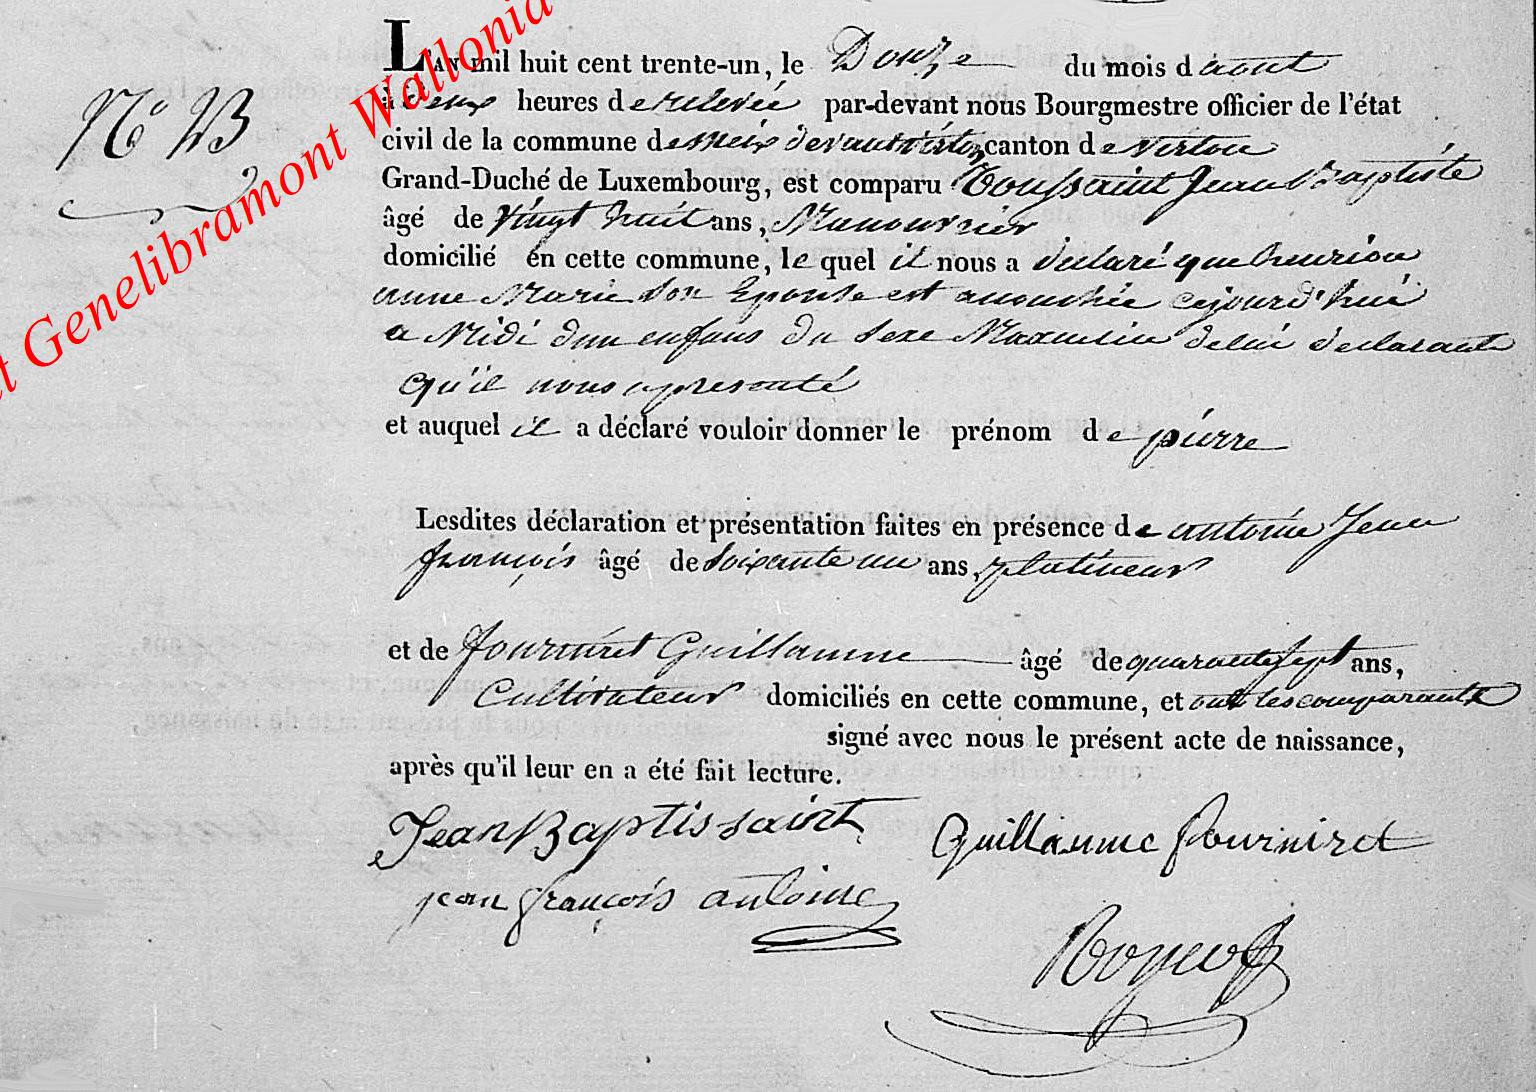 L'AN mil huit cent trente-un, le Douze du mois d'aout
N° 23
à deux heures de relevée par-devant nous Bourgmestre officier de l'état
civil de la commune de meix devant virton canton de virton
Grand-Duché de Luxembourg, est comparu Toussaint Jean Baptiste
âgé de vingt huit ans, Manouvrier
domicilié en cette commune, le quel il nous a declaré que henrion
anne Marie son Epouse est accouchée cejourd'hui
a Midi d'un enfans du sexe Masculin de lui declarant
qu'il nous a presenté
et auquel il a déclaré vouloir donner le prénom de pierre
Lesdites déclaration et présentation faites en présence de antoine Jean
françois âgé de soixante un ans, platineur
et de fourniret Guillaume âgé de quarante sept ans,
Cultivateur domiciliés en cette commune, et ont les comparants
signé avec nous le présent acte de naissance,
après qu'il leur en a été fait lecture.
Jean Baptissaint Guillaume fourniret
jean françois antoine
Genelibramont Wallonia